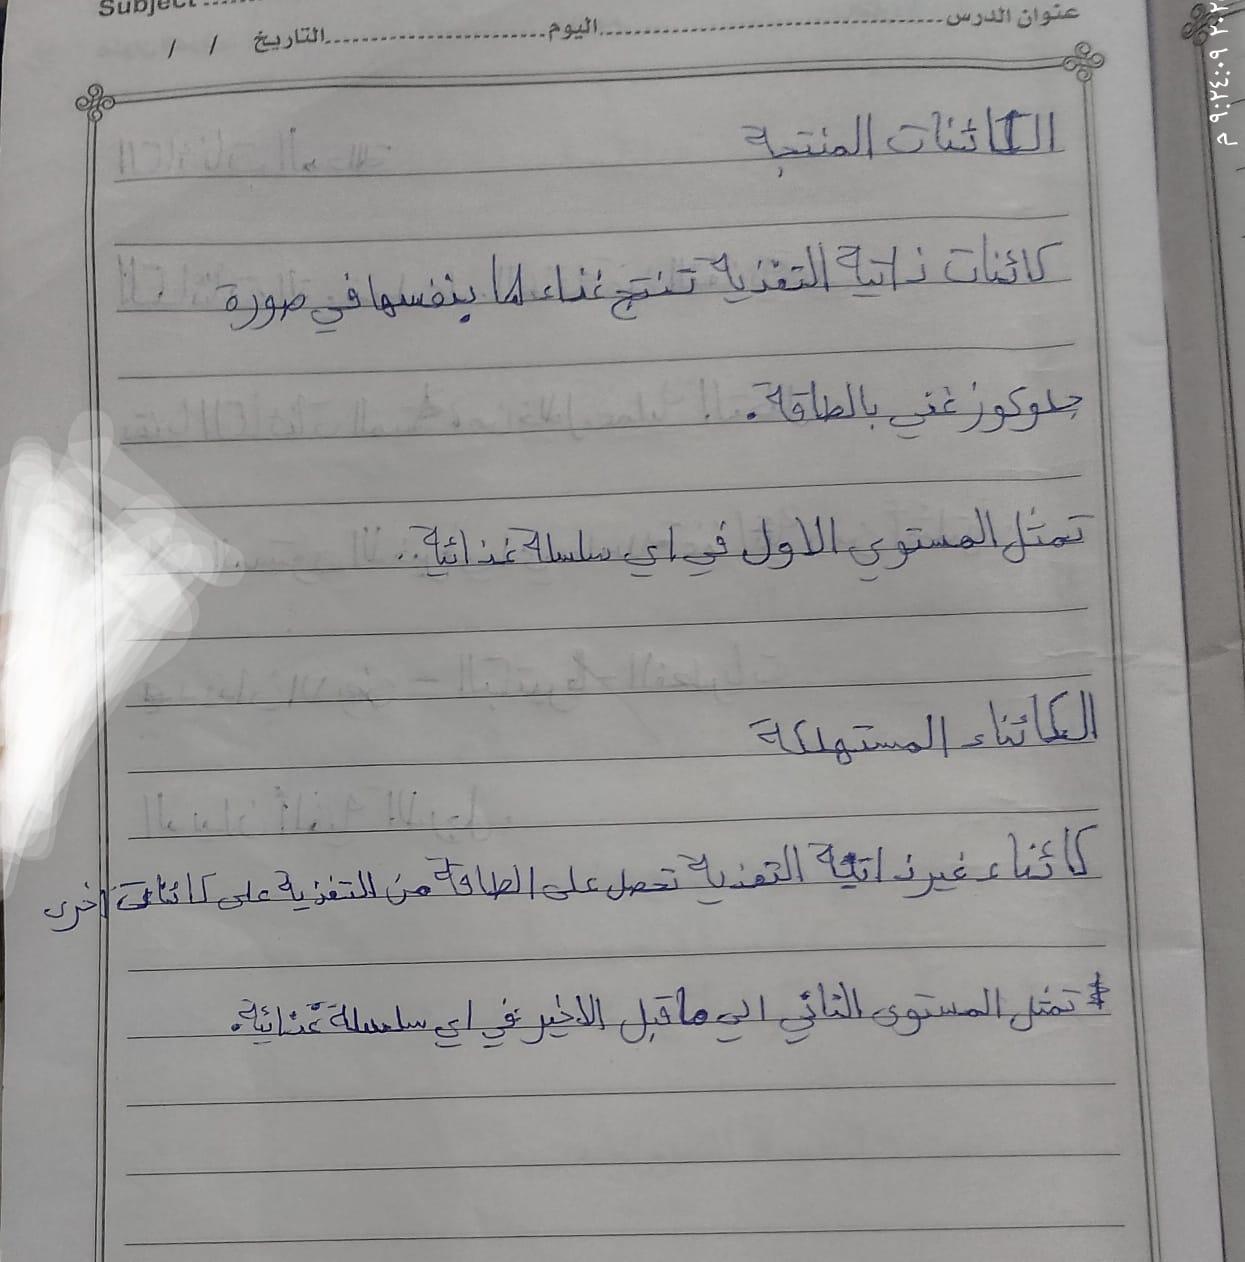 Subject
عنوان الدرس اليوم التاريخ / /
الكائنات المنتجة
كائنات ذاتية التغذية تنتج غذاء لها بنفسها في صورة
جلوكوز غني بالطاقة.
تمثل المستوي الاول في اي سلسلة غذائية..
الكائناء المستهلكة
كائناء غير ذاتية التغذية تحصل على الطاقة من التغذية على كائنات اخرى
* تمثل المستوى الثاني الي ماقبل الاخير في اي سلسلة غذائية.